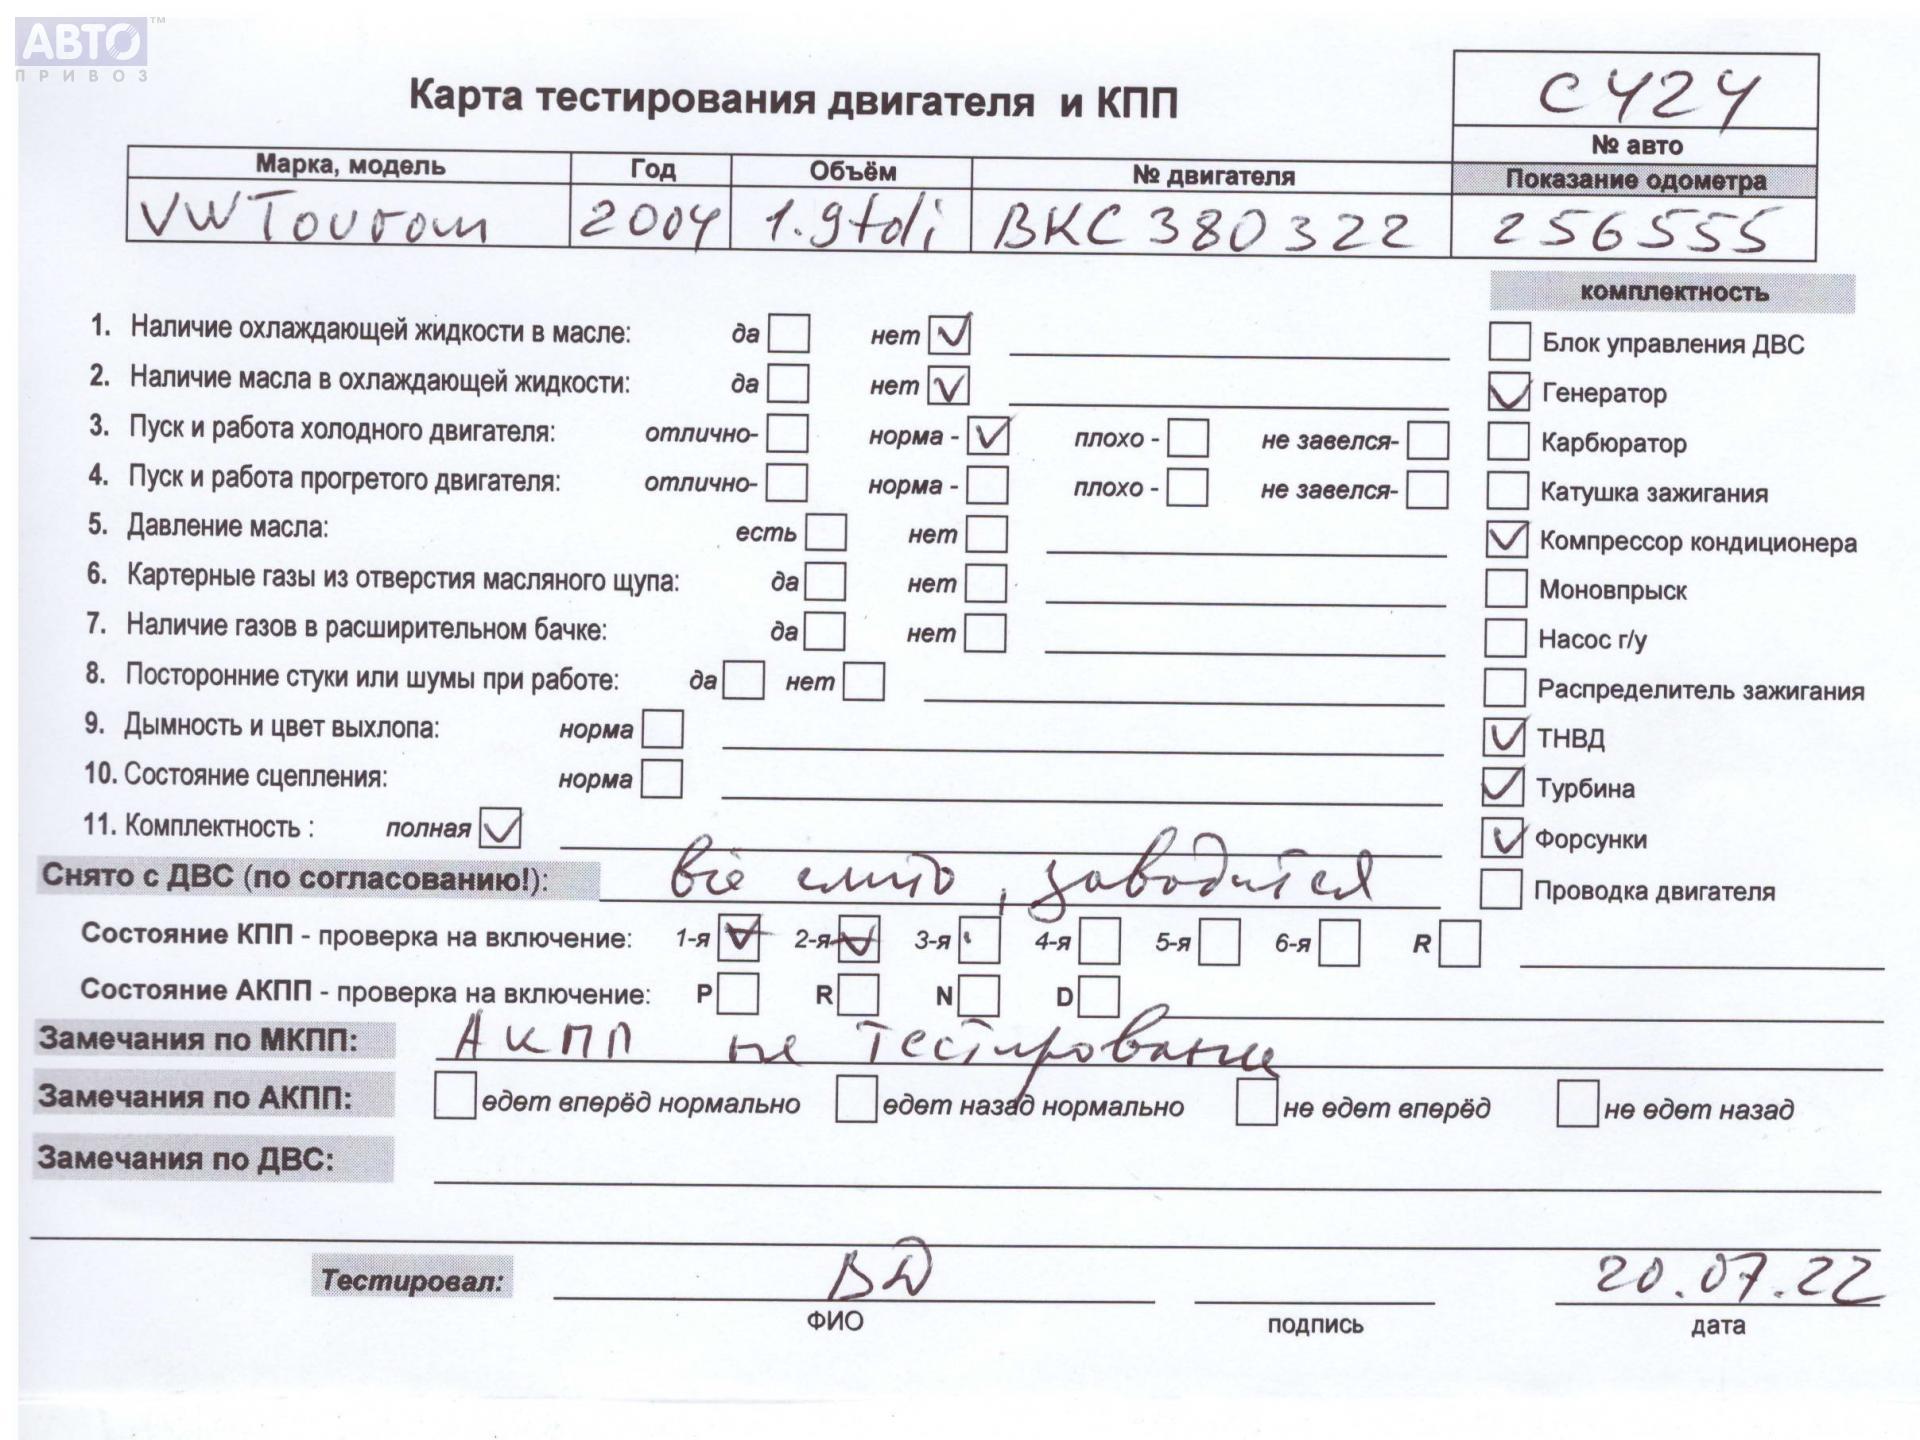 АВТО™
ПРИВОЗ
Карта тестирования двигателя и КПП
C424
№ авто
Марка, модель Год Объём № двигателя Показание одометра
VW Touran 2004 1.9tdi BKC 380322 256555
комплектность
1. Наличие охлаждающей жидкости в масле: да нет ✓
2. Наличие масла в охлаждающей жидкости: да нет ✓
3. Пуск и работа холодного двигателя: отлично- норма - ✓ плохо - не завелся-
4. Пуск и работа прогретого двигателя: отлично- норма - плохо - не завелся-
5. Давление масла: есть нет
6. Картерные газы из отверстия масляного щупа: да нет
7. Наличие газов в расширительном бачке: да нет
8. Посторонние стуки или шумы при работе: да нет
9. Дымность и цвет выхлопа: норма
10. Состояние сцепления: норма
11. Комплектность : полная ✓
Блок управления ДВС
✓ Генератор
Карбюратор
Катушка зажигания
✓ Компрессор кондиционера
Моновпрыск
Насос г/у
Распределитель зажигания
✓ ТНВД
✓ Турбина
✓ Форсунки
Проводка двигателя
Снято с ДВС (по согласованию!): всё , заводится
Состояние КПП - проверка на включение: 1-я ✓ 2-я ✓ 3-я 4-я 5-я 6-я R
Состояние АКПП - проверка на включение: P R N D
Замечания по МКПП: АКПП не
Замечания по АКПП: едет вперёд нормально едет назад нормально не едет вперёд не едет назад
Замечания по ДВС:
Тестировал: ВД 20.07.22
ФИО подпись дата